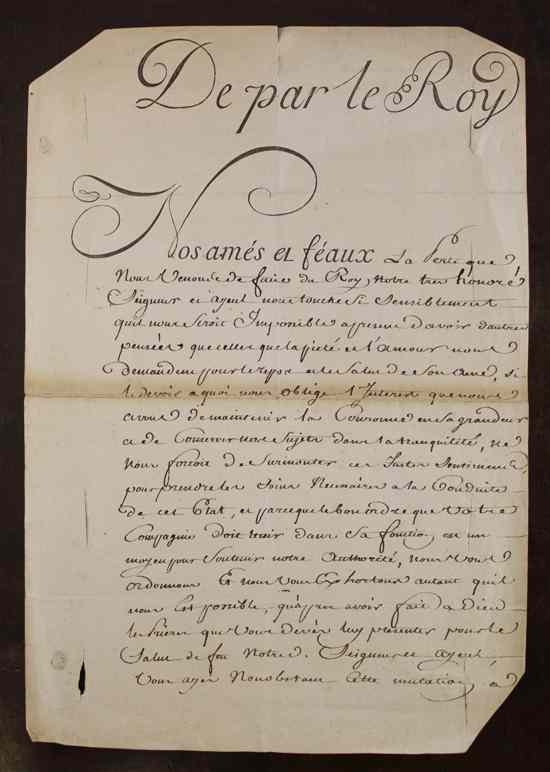 De par le Roy
Nos amés et féaux La Perte que
Nous Venons de faire du Roy Notre tres honoré
Seigneur et ayeul nous touche Si Sensiblement
quil nous seroit Impossible apresent d'avoir dautres
pensées que celles que la pieté et l'amour nous
demandent pour le repos et le Salut de Son ame, si
le devoir a quoi nous oblige l'Interest que nous
avons de maintenir la Couronne en sa grandeur
et de Conserver nos Sujets dans la tranquilité, ne
Nous forçoit de Surmonter ces Justes Sentiments
pour prendre les Soins Necessaires a la Conduite
de cet Etat, et parce que le bon ordre que Votre
Compagnie doit tenir dans Sa fonction, est un
moyen pour Soutenir notre Authorité, Nous Vous
ordonnons Et nous Vous Exhortons autant quil
nous Est possible, qu'apres avoir fait a Dieu
les Prieres que Vous devés luy presenter pour le
Salut de feu Notred. Seigneur et ayeul
Vous ayez Nonobstant Cette mutation, à